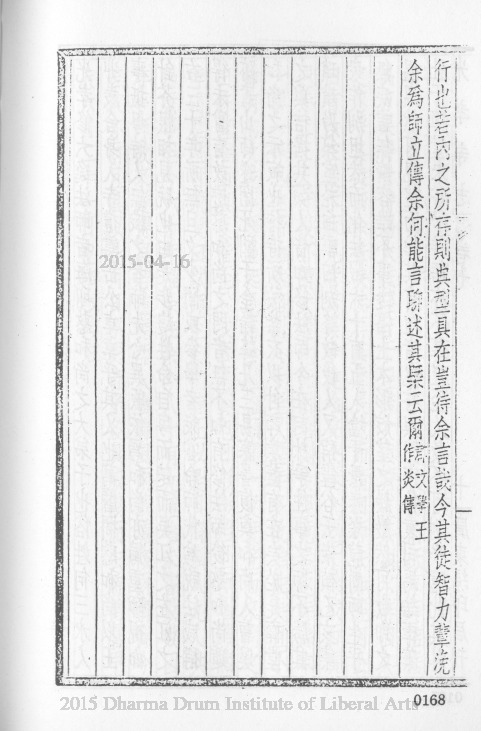 行也若內之所存則典型具在豈待余言哉今其徒智力輩浼
余爲師立傳余何能言聊述其槩云爾
文學王
作炎傳
2015-04-16
2015 Dharma Drum Institute of Liberal Arts
0168